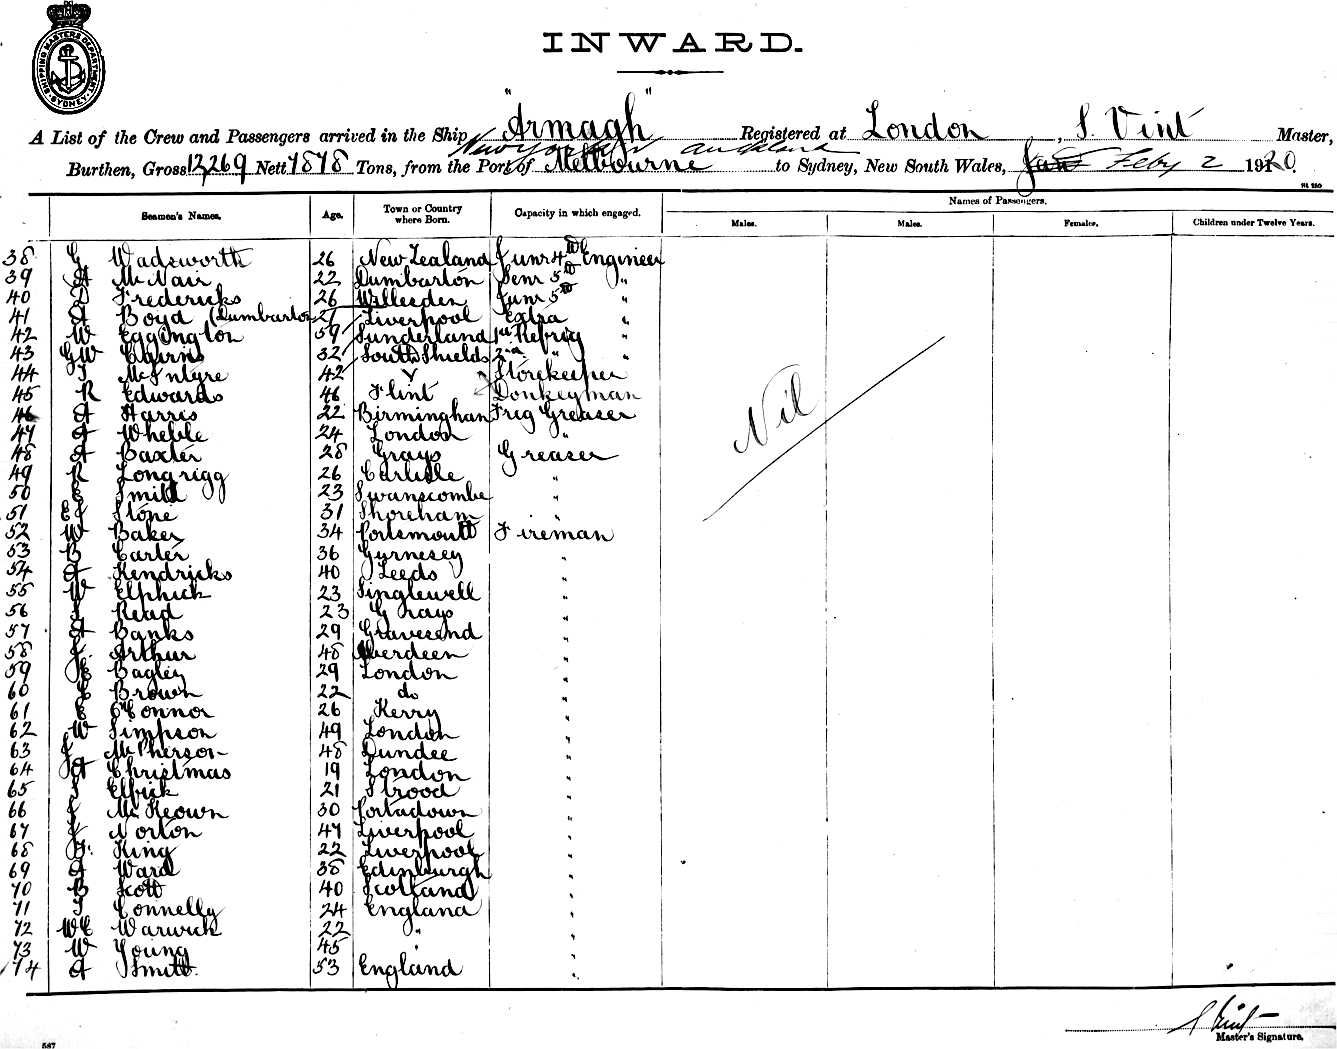 SHIPPING MASTERS DEPARTMENT
SYDNEY
INWARD.
A List of the Crew and Passengers arrived in the Ship "Armagh" Registered at London, S. Vint Master,
New York via Auckland
Burthen, Gross 12269 Nett 7878 Tons, from the Port of Melbourne to Sydney, New South Wales, Jan Feby 2 1920.
Seamen's Names. Age. Town or Country where Born. Capacity in which engaged. Names of Passengers.
Males. Males. Females. Children under Twelve Years.
38 G Wadsworth 26 New Zealand Junr 4th Engineer
39 A McNair 22 Dumbarton Senr 5th "
40 D Fredericks 26 Willesden Junr 5th "
41 A Boyd (Dumbarton 27 Liverpool Extra "
42 W Eggington 59 Sunderland 1st Refrig "
43 GW Cairns 32 South Shields 2nd " "
44 T McIntyre 42 Storekeeper
45 R Edwards 46 Flint Donkeyman
46 A Harris 22 Birmingham Frig Greaser
47 A Wheble 24 London "
48 A Baxter 28 Grays Greaser
49 R Longrigg 26 Carlisle "
50 E Smith 23 Swanscombe "
51 Stone 31 Shoreham "
52 W Baker 34 Portsmouth Fireman
53 B Carter 36 Gurnesey "
54 A Kendricks 40 Leeds "
55 W Elphick 23 Singlewell "
56 Read 23 Grays "
57 A Banks 29 Gravesend "
58 J. Arthur 48 Aberdeen "
59 Bagley 29 London "
60 Brown 22 do "
61 O'Connor 26 Kerry "
62 W Simpson 49 London "
63 J McPherson 48 Dundee "
64 Christmas 19 London "
65 Elfick 21 Strood "
66 J McKeown 30 Portadown "
67 J Norton 47 Liverpool "
68 F. King 22 Liverpool "
69 A Ward 38 Edinburgh "
70 B Scott 40 Scotland "
71 T Connelly 24 England "
72 WC Warwick 22 " "
73 W Young 45 " "
74 A Smith 53 England "
Nil
S Vint
Master's Signature.
587